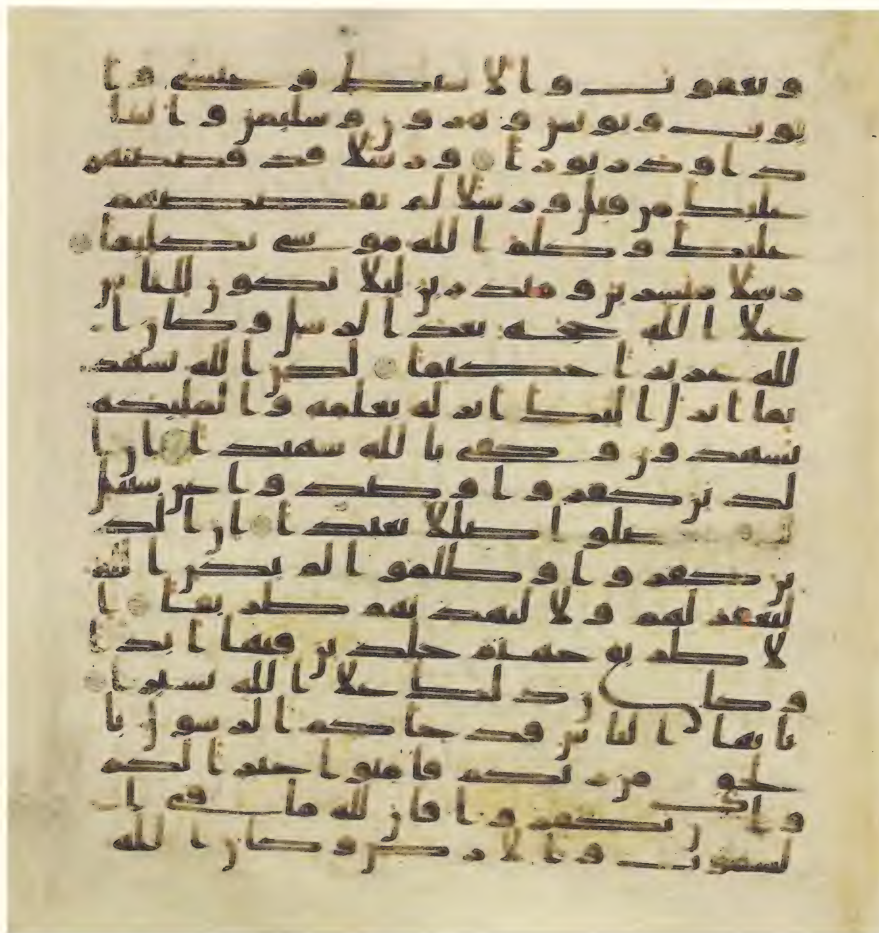 ويعقوب والاسبط وعيسى وا
يوب ويونس وهرون وسليمن واتينا
داود زبورا ورسلا قد قصصنهم
عليك من قبل ورسلا لم نقصصهم
عليك وكلم الله موسى تكليما
رسلا مبشرين ومنذرين ليلا يكون للناس
علا الله حجة بعد الرسل وكان ا
لله عزيزا حكيما لكن الله يشهد
بما انزل اليك انزله بعلمه والمليكة
يشهدون وكفى بالله شهيدا ان ا
لذين كفروا وصدوا عن سبيل
الله قد ضلوا ضللا بعيدا ان الذ
ين كفروا وظلموا لم يكن الله
ليغفر لهم ولا ليهديهم طريقا ا
لا طريق جهنم خلدين فيها ابدا
وكان ذلك علا الله يسيرا
يايها الناس قد جاكم الرسول با
لحق من ربكم فامنوا خيرا لكم
وان تكفروا فان لله ما في ا
لسموت والارض وكان الله